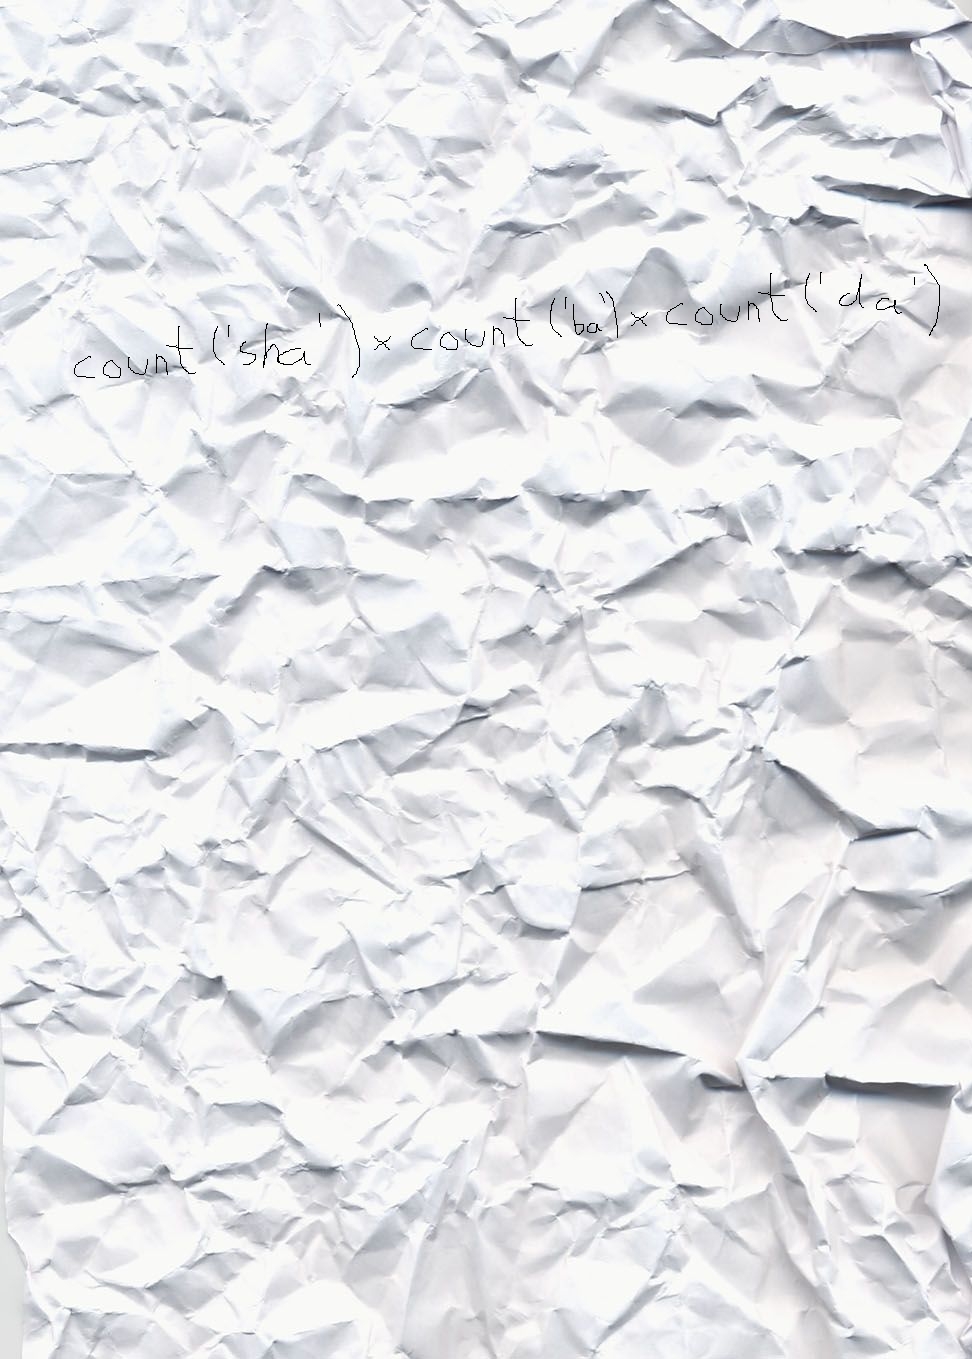 count('sha')×count('ba')×count('da')